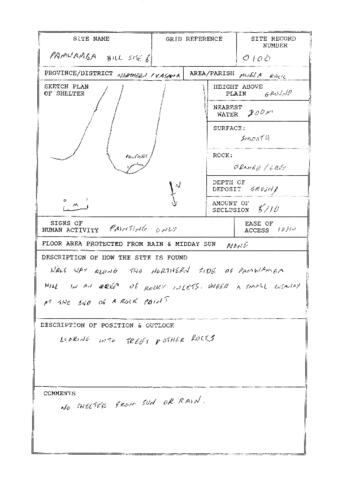 SITE NAME GRID REFERENCE SITE RECORD
NUMBER
PAMWAMBA HILL SITE 6 0100
PROVINCE/DISTRICT NORTHERN / KASAMA AREA/PARISH ROCK
SKETCH PLAN HEIGHT ABOVE
OF SHELTER PLAIN GROUND
NEAREST
WATER 800m
SURFACE:
SMOOTH
ROCK:
ORANGE / GREY
DEPTH OF
DEPOSIT GROUND
AMOUNT OF
SECLUSION 5/10
N
m
SIGNS OF EASE OF
HUMAN ACTIVITY PAINTING ONLY ACCESS 10/10
FLOOR AREA PROTECTED FROM RAIN & MIDDAY SUN NONE
DESCRIPTION OF HOW THE SITE IS FOUND
HALF WAY ALONG THE NORTHERN SIDE OF PAMWAMBA
HILL IN AN AREA OF ROCKY INLETS. UNDER A SMALL
AT THE END OF A ROCK POINT
DESCRIPTION OF POSITION & OUTLOOK
LOOKING INTO TREES & OTHER ROCKS
COMMENTS
NO SHELTER FROM SUN OR RAIN.